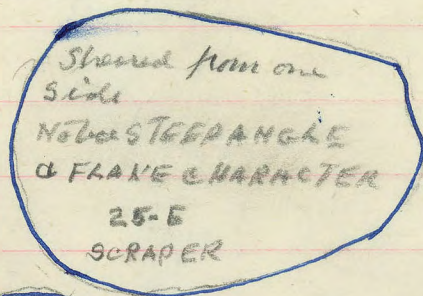 Sheared from one
side
Note STEEP ANGLE
& FLAKE CHARACTER
25-E
SCRAPER